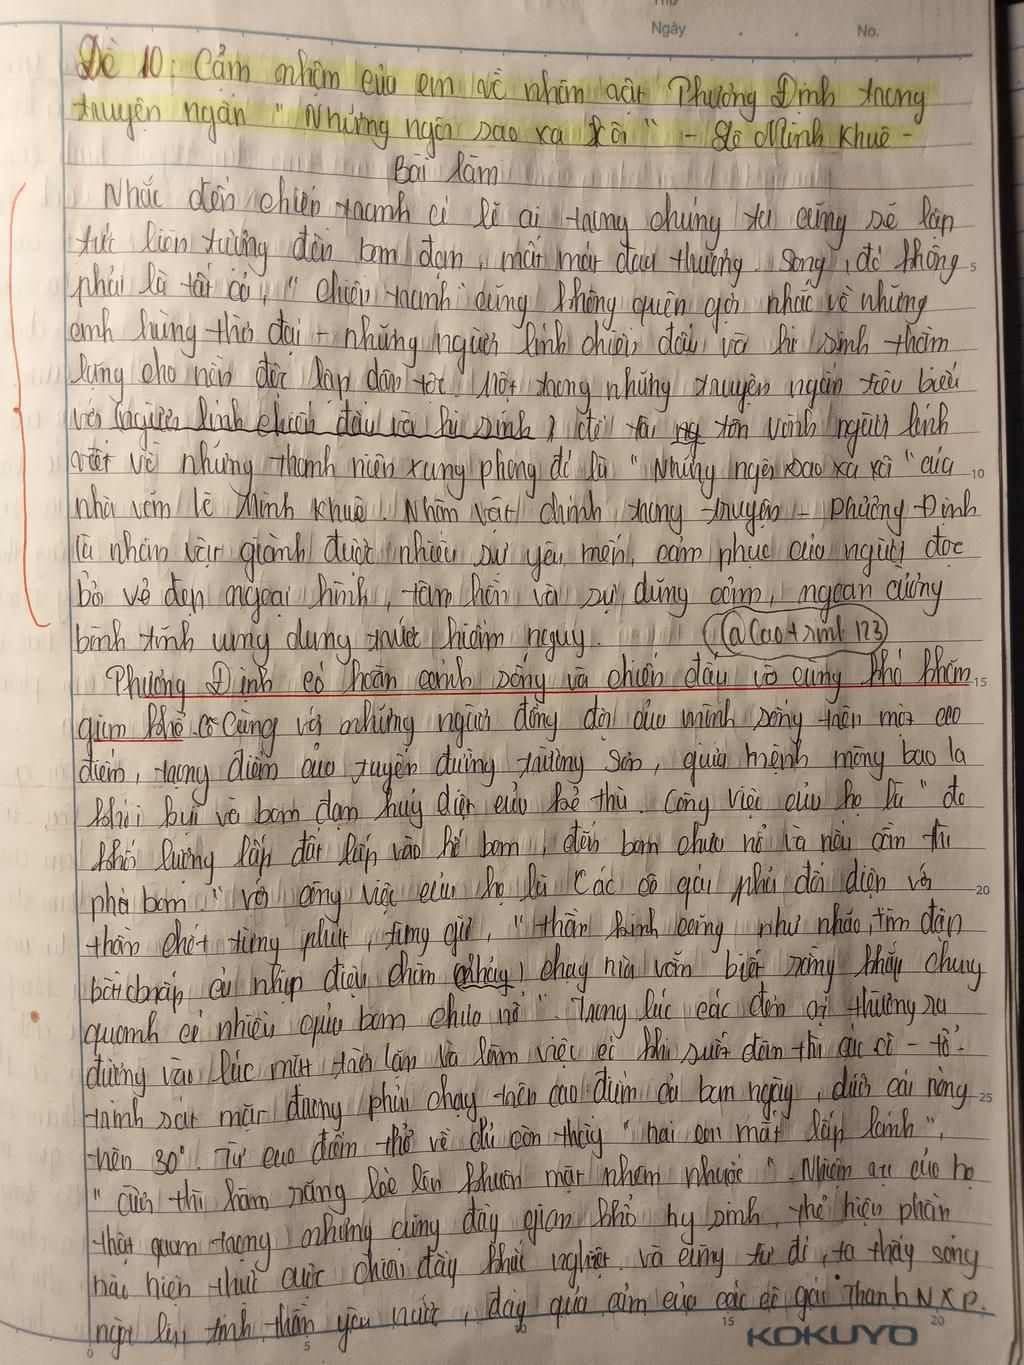 Thứ
Ngày . . No.
Đề 10: Cảm nhận của em về nhân vật Phương Định trong
truyện ngắn "Những ngôi sao xa xôi" - Lê Minh Khuê -
Bài làm
Nhắc đến chiến tranh có lẽ ai trong chúng ta cũng sẽ lập
tức liên tưởng đến bom đạn, mất mát đau thương. Song, đó không 5
phải là tất cả, "chiến tranh" cũng không quên gợi nhắc về những
anh hùng thời đại - những người lính chiến đấu và hi sinh thầm
lặng cho nền độc lập dân tộc. Một trong những truyện ngắn tiêu biểu
với (người lính chiến đấu và hi sinh) đề tài ng tôn vinh người lính
viết về những thanh niên xung phong đó là "Những ngôi sao xa xôi" của 10
nhà văn Lê Minh Khuê. Nhân vật chính trong truyện - Phương Định
là nhân vật giành được nhiều sự yêu mến, cảm phục của người đọc
bởi vẻ đẹp ngoại hình, tâm hồn và sự dũng cảm, ngoan cường
bình tĩnh ung dung trước hiểm nguy. (@Cao+sinh 123)
Phương Định có hoàn cảnh sống và chiến đấu vô cùng khó khăn 15
gian khổ. Cô cùng với những người đồng đội của mình sống trên một cao
điểm, trọng điểm của tuyến đường Trường Sơn, giữa mênh mông bao la
khói bụi và bom đạn huỷ diệt của kẻ thù. Công việc của họ là "đo
khối lượng đất lấp vào hố bom, đếm bom chưa nổ và nếu cần thì
phá bom." với công việc của họ là Các cô gái phải đối diện với 20
thần chết từng phút, từng giờ, "thần kinh căng như chão, tim đập
bất chấp cả nhịp điệu, chân (nhảy) chạy mà vẫn biết rằng khắp chung
quanh có nhiều quả bom chưa nổ". Trong lúc các đơn vị thường ra
đường vào lúc mặt trời lặn và làm việc có khi suốt đêm thì các cô - tổ
trinh sát mặt đường phải chạy trên cao điểm cả ban ngày, dưới cái nóng 25
trên 30°. Từ cao điểm trở về chỉ còn thấy "hai con mắt lấp lánh",
"cười thì hàm răng lóe lên khuôn mặt nhem nhuốc". Nhiệm vụ của họ
thật quan trọng nhưng cũng đầy gian khổ hy sinh, thể hiện phần
nào hiện thực cuộc chiến đầy khắc nghiệt. và cũng từ đó, ta thấy sáng
ngời lên tinh thần yêu nước, đầy quả cảm của các cô gái Thanh N X P.
0 5 10 15 20
KOKUYO